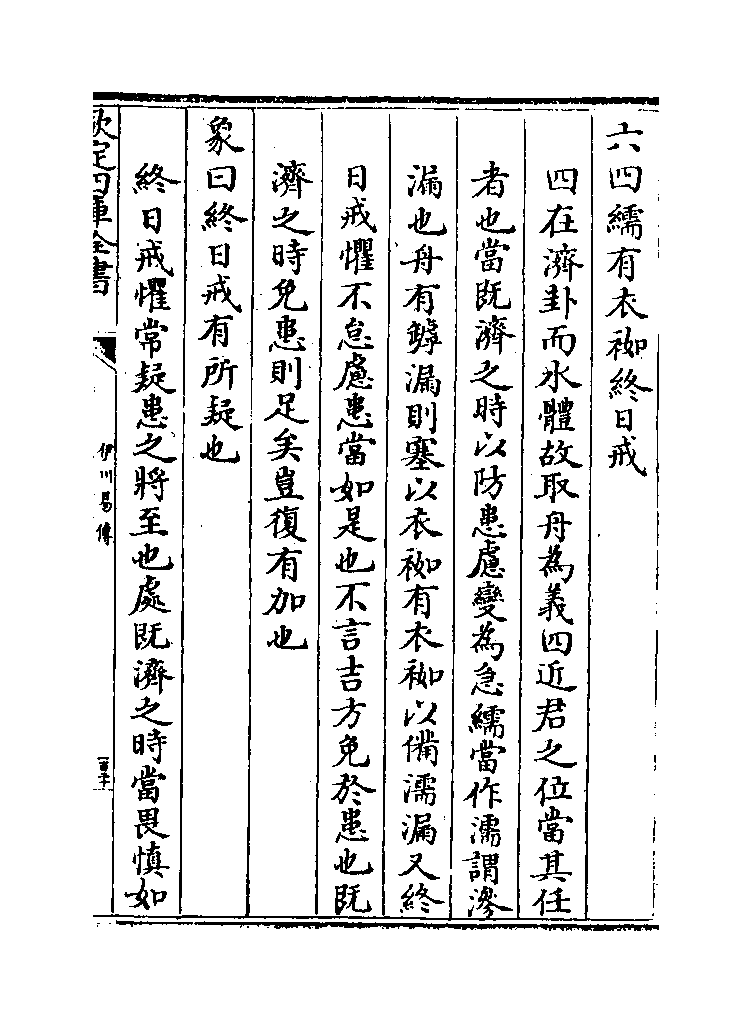 六四繻有衣袽終日戒
四在濟卦而水體故取舟為義四近君之位當其任
者也當既濟之時以防患慮變為急繻當作濡謂滲
漏也舟有罅漏則塞以衣袽有衣袽以備濡漏又終
日戒懼不怠慮患當如是也不言吉方免於患也既
濟之時免患則足矣豈復有加也
象曰終日戒有所疑也
終日戒懼常疑患之將至也處既濟之時當畏慎如
欽定四庫全書
伊川易傳